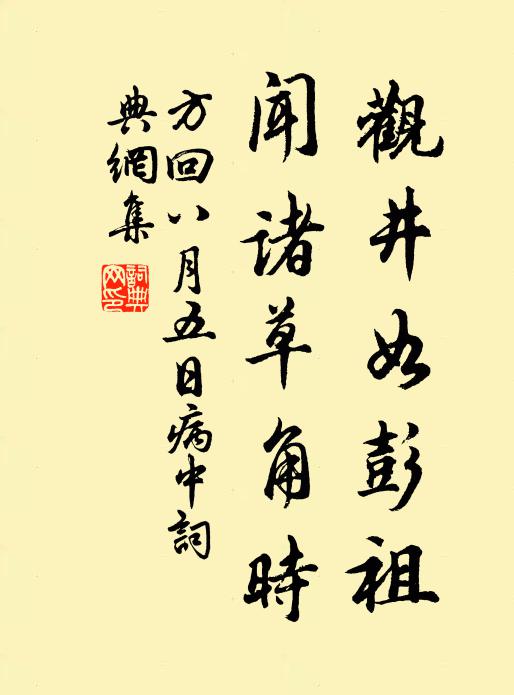 觀井如彭祖
聞諸草角時
方回八月五日病中詞
典網集
詞典網印